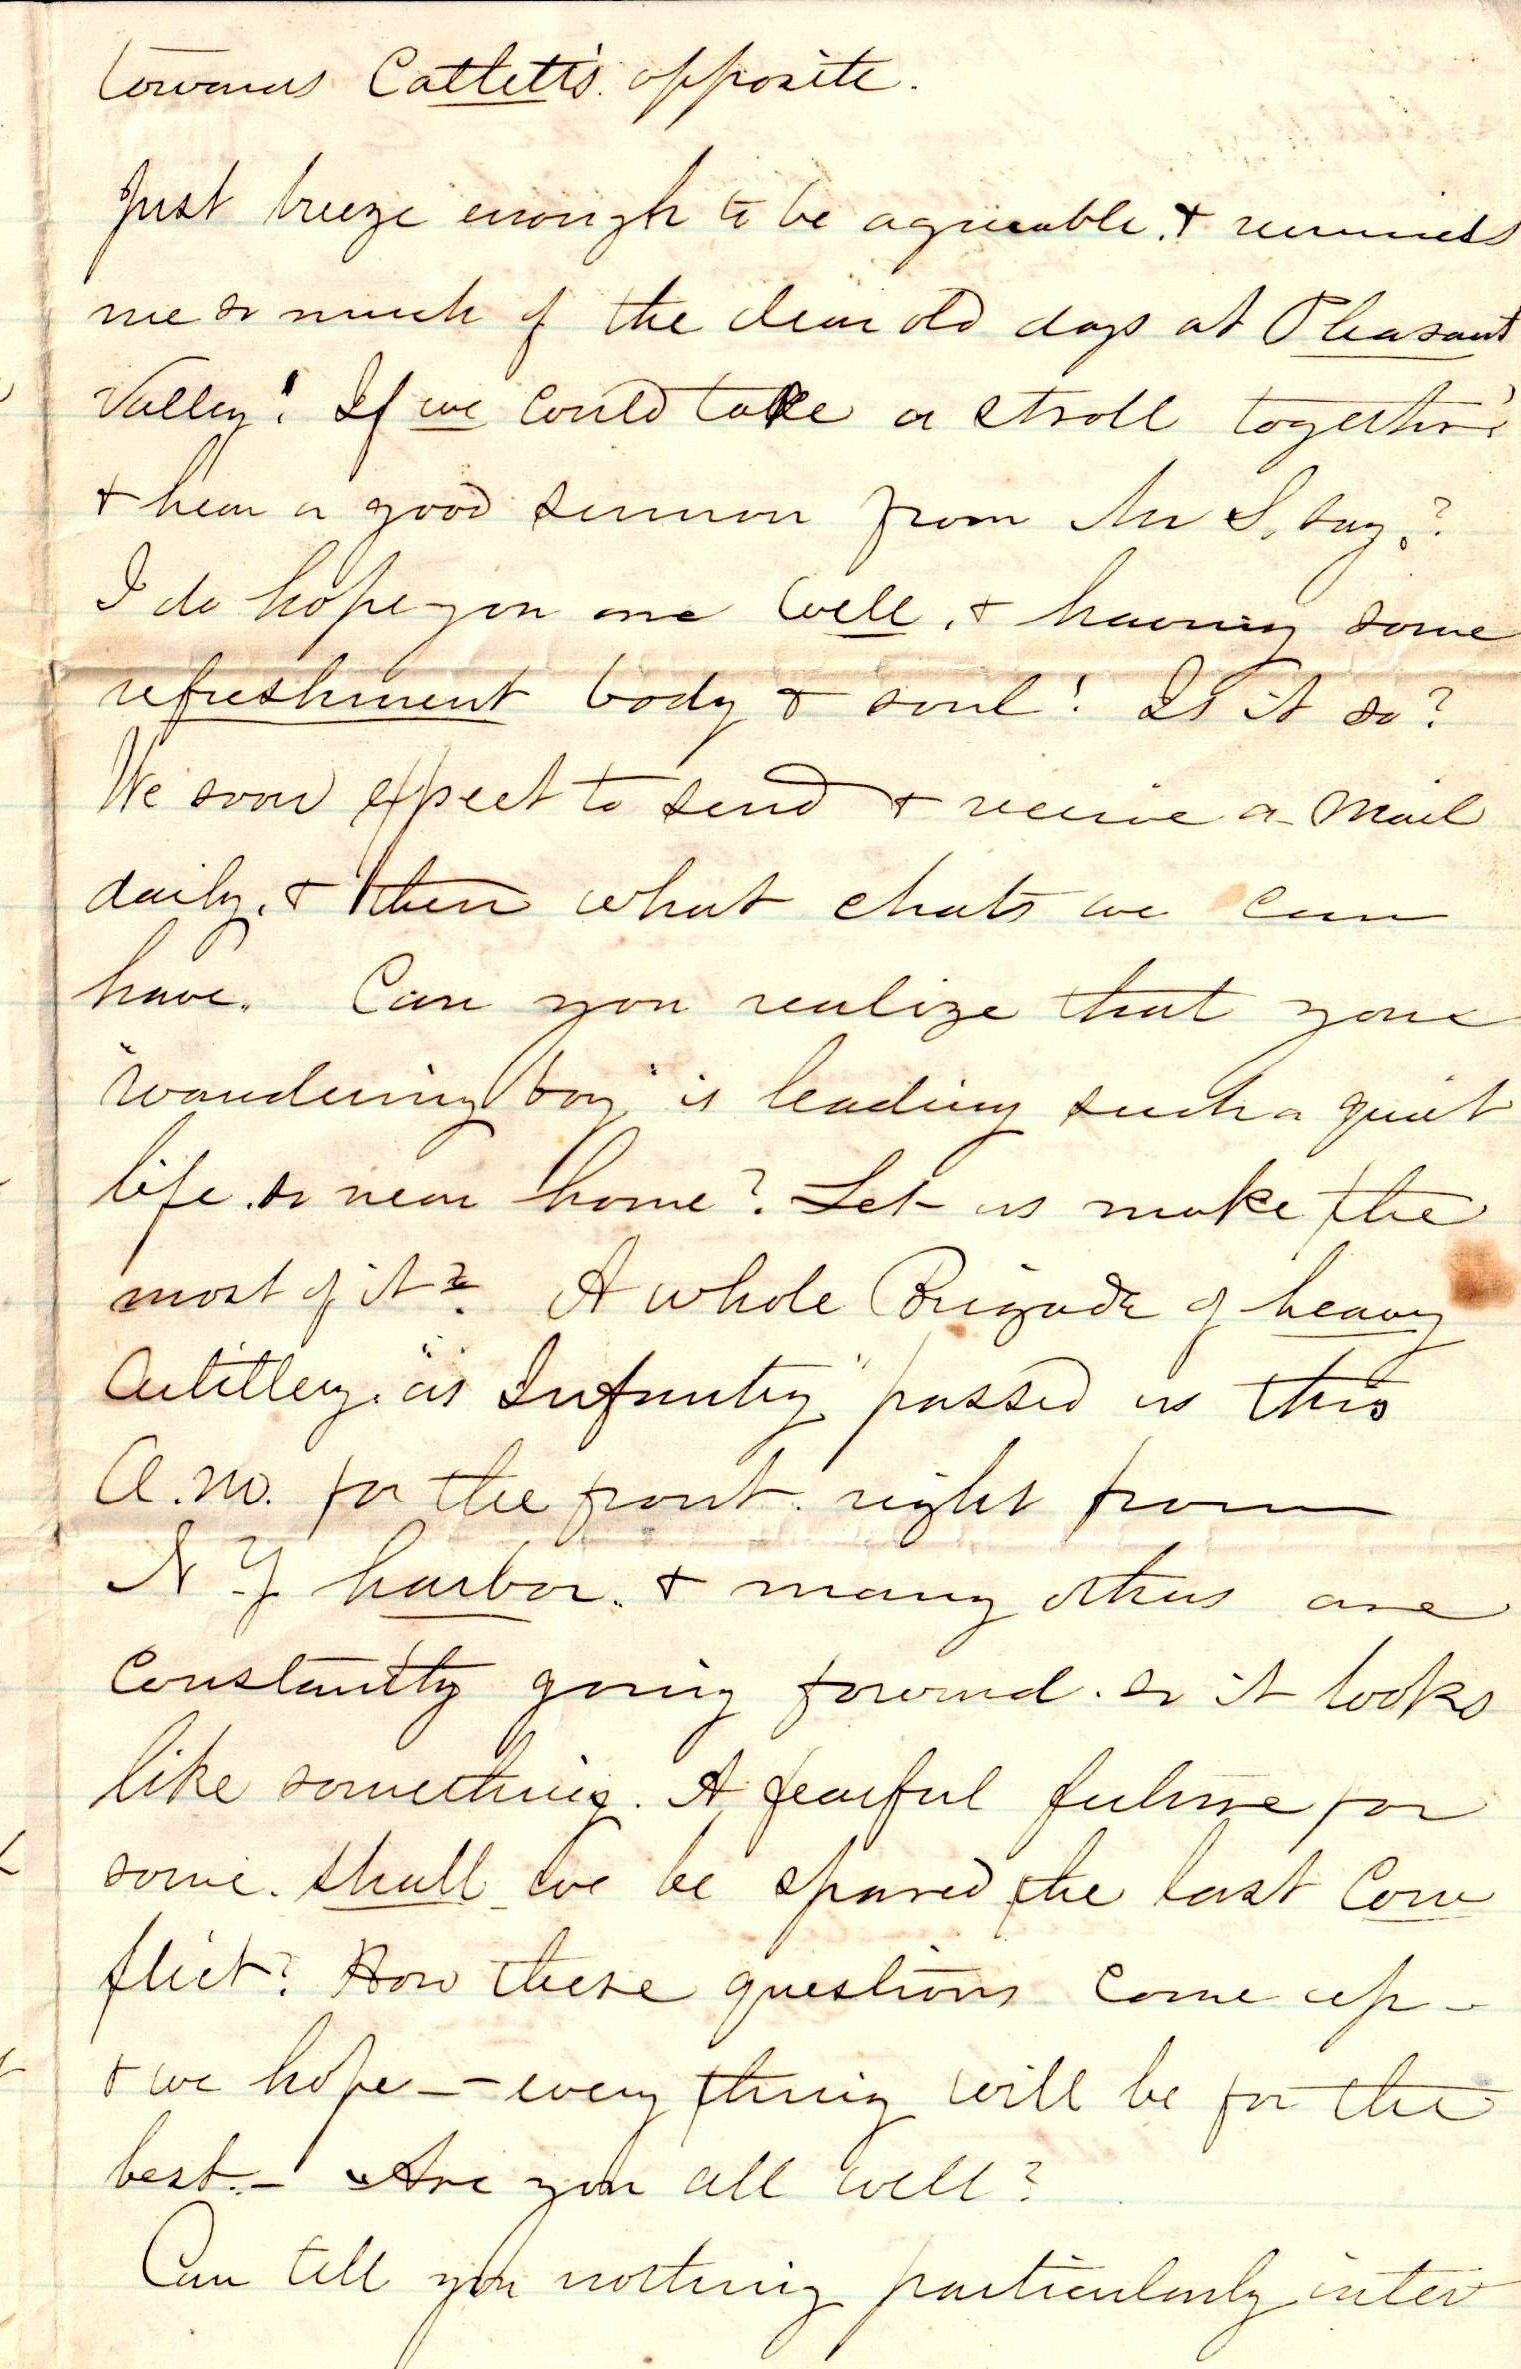 towards Catlett's opposite.
Just breeze enough to be agreeable. & reminds
me so much of the dear old days at Pleasant
Valley! If we could take a stroll together!
& hear a good sermon from Mr S, say?
I do hope you are well, & having some
refreshment body & soul! Is it so?
We soon expect to send & receive a mail
daily, & then what chats we can
have. Can you realize that your
"wandering boy" is leading such a quiet
life. so near home? Let us make the
most of it? A whole Brigade of heavy
Artillery. "as Infantry" passed us this
A.M. for the front. right from
N Y harbor. & many others are
constantly going forward. so it looks
like something. A fearful future for
some. shall we be spared the last con
flict? How these questions come up -
& we hope - - every thing will be for the
best. - Are you all well?
Can tell you nothing particularly inter